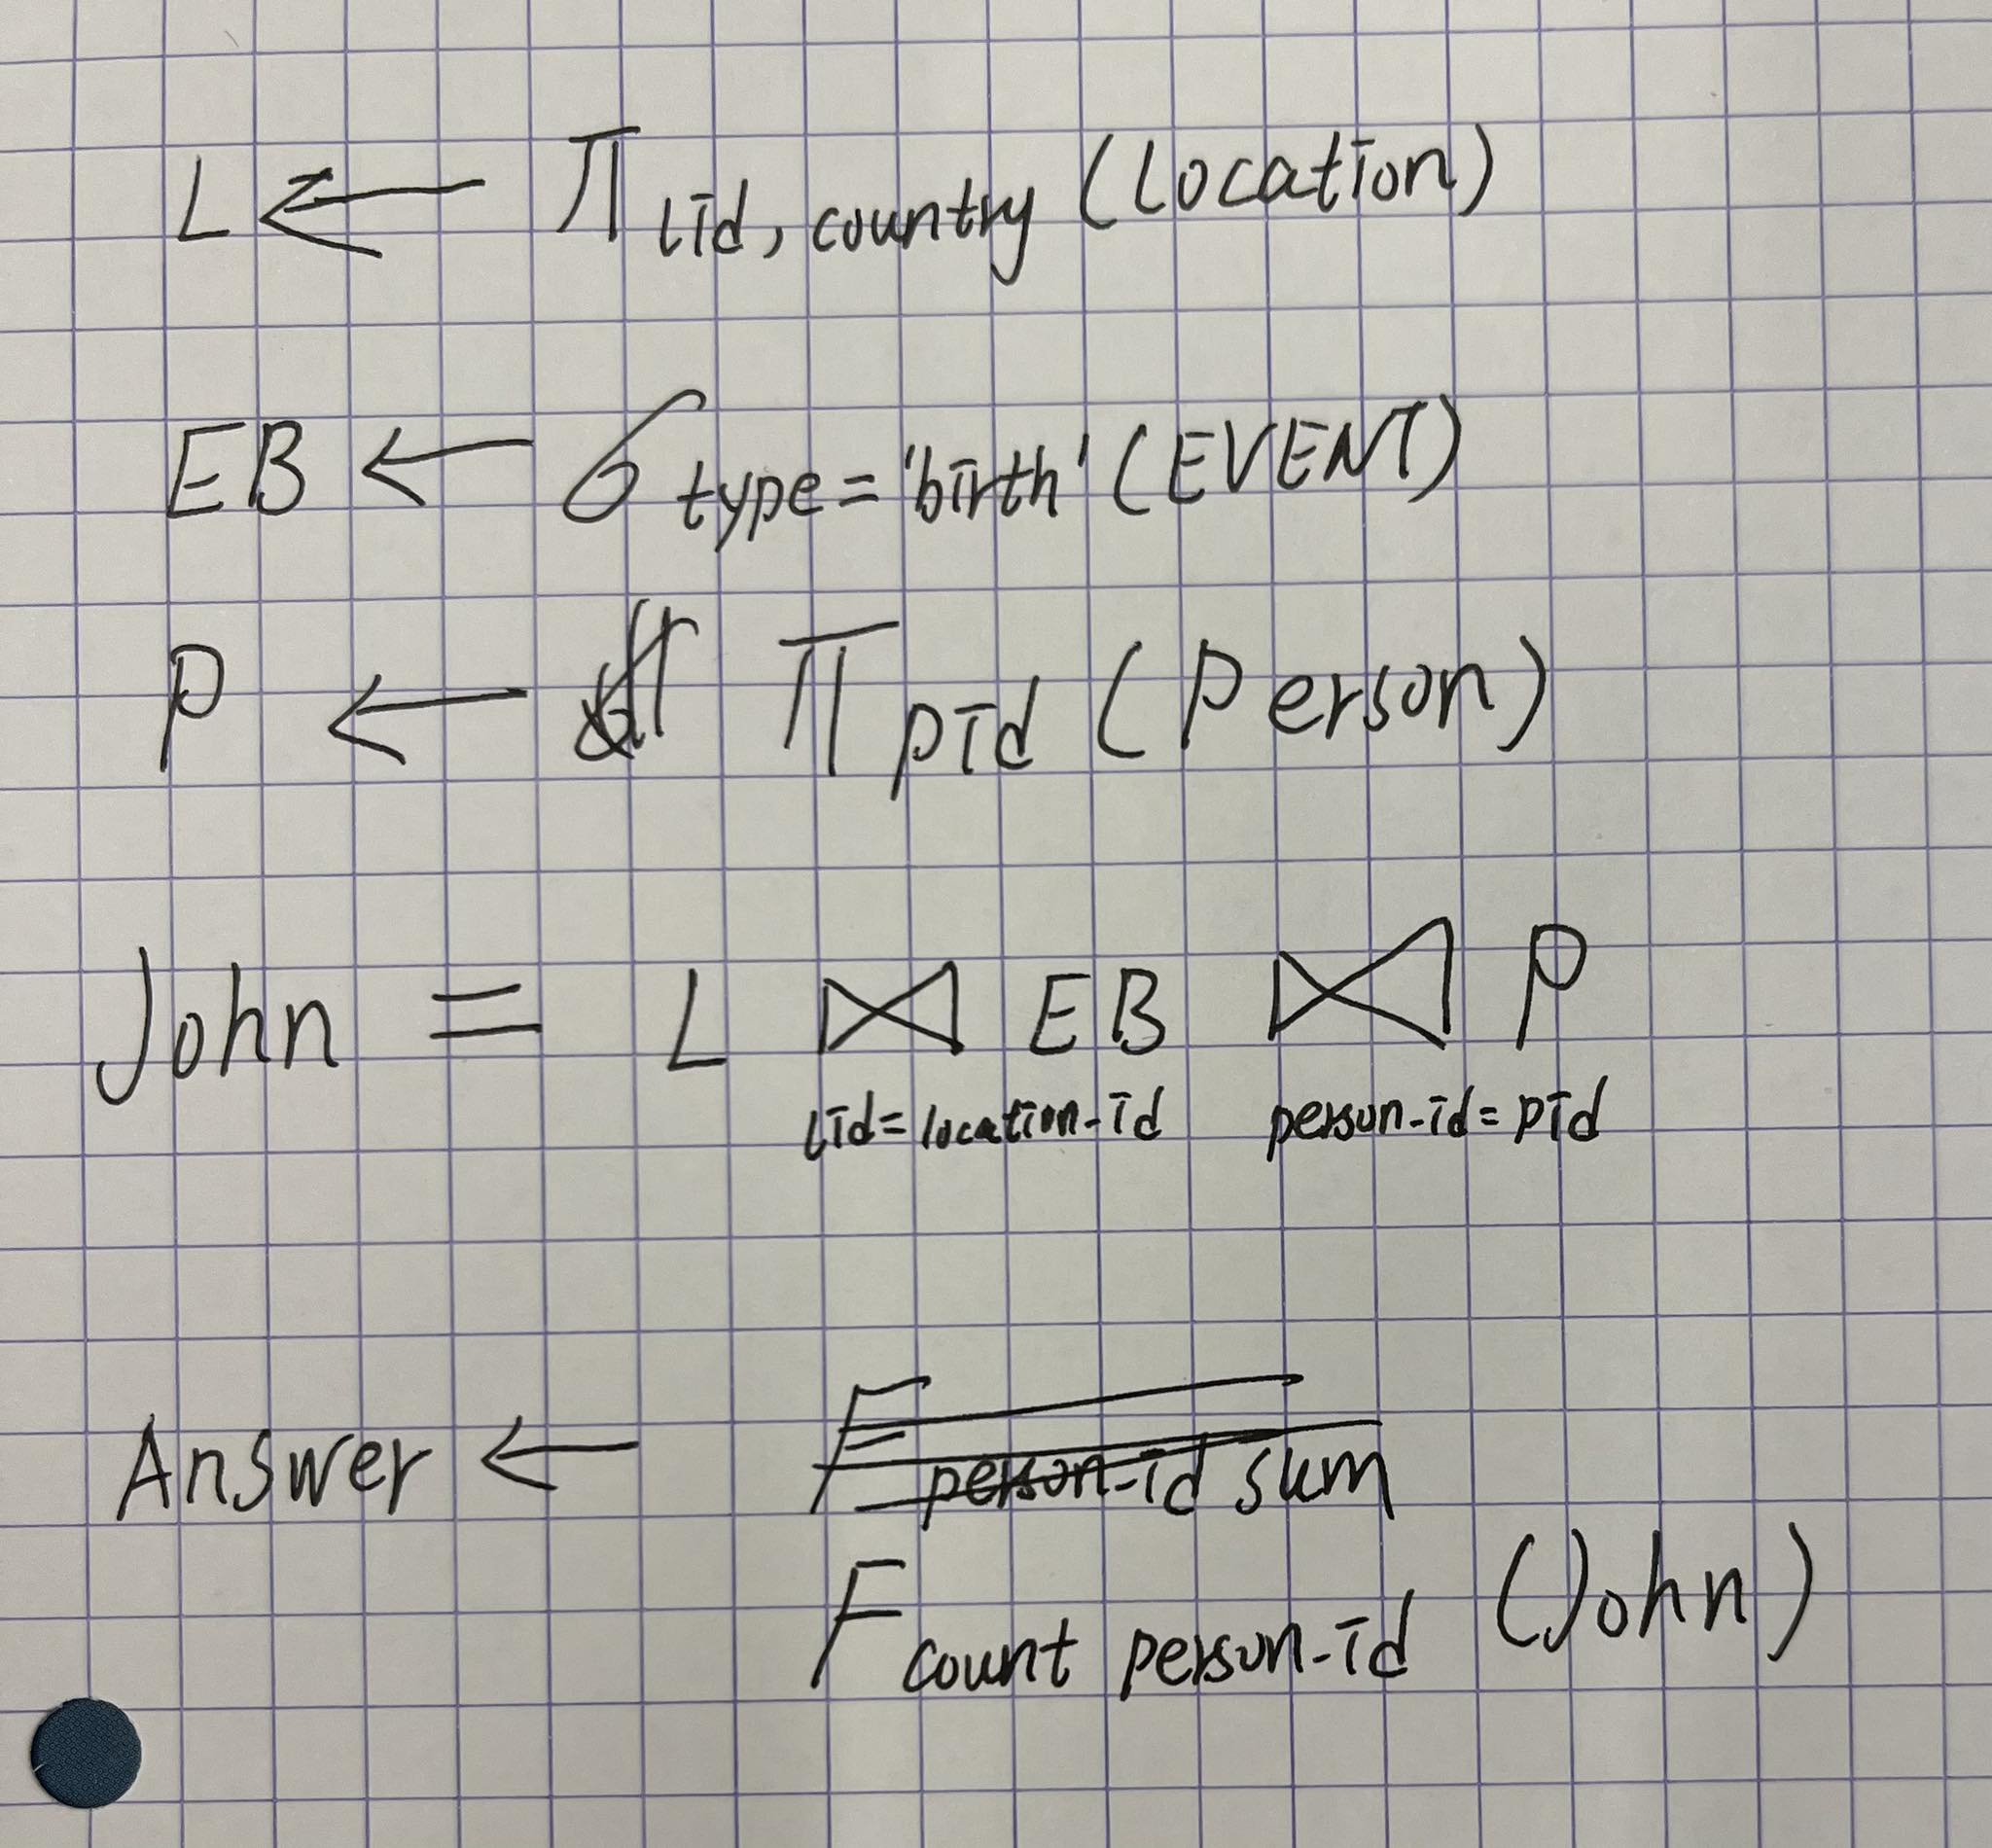 L ← π lid, country (Location)
EB ← σ type = 'birth' (EVENT)
P ← π pid (Person)
John = L ⋈ EB ⋈ P
lid = location-id person-id = pid
Answer ← F person-id sum
F count person-id (John)